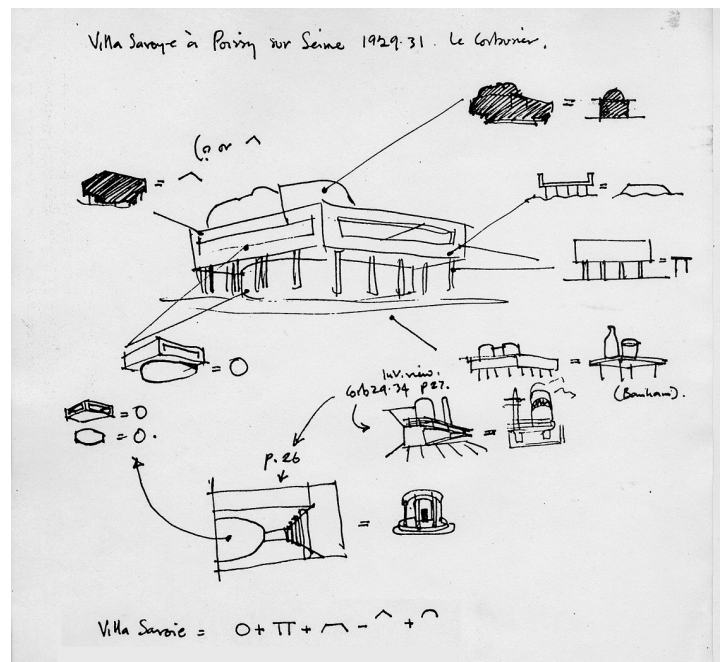 Villa Savoye à Poissy sur Seine 1929.31. Le Corbusier.
(? or ^
= ^
=
=
= π
= O
=
(Banham).
Inv. view.
Corb 29.34 p27.
=
= O
= O.
p.26
=
Villa Savoie = O + π + ⌒ - ^ + ⌒